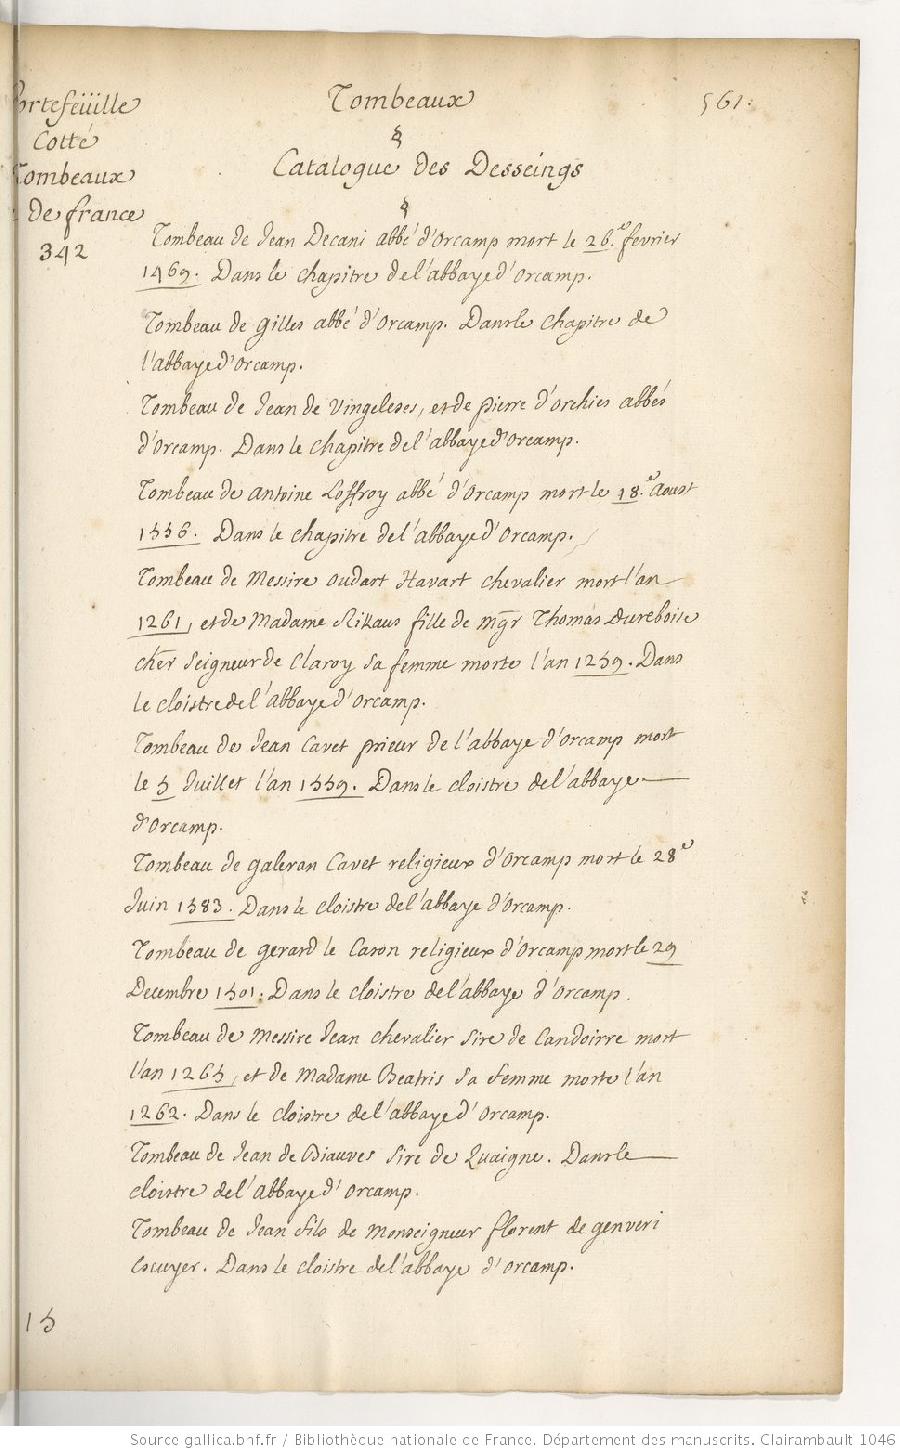 Portefeüille
Cotté
Tombeaux
de france
342
Tombeaux
561.
§
Catalogue des Desseings
§
Tombeau de Jean Decani abbé d'Orcamp mort le 26.e fevrier
1469. Dans le chapitre de l'abbaye d'Orcamp.
Tombeau de Gilles abbé d'Orcamp. Dans le Chapitre de
l'abbaye d'Orcamp.
Tombeau de Jean de Vingeleses, et de pierre d'orchies abbés
d'Orcamp. Dans le Chapitre de l'abbaye d'Orcamp.
Tombeau de Antoine Loffroy abbé d'Orcamp mort le 18.e Aoust
1556. Dans le chapitre de l'abbaye d'Orcamp.
Tombeau de Messire oudart Havart chevalier mort l'an
1261, et de Madame Rikaus fille de mgr Thomas Dureboise
cher Seigneur de Claroy Sa femme morte l'an 1259. Dans
le cloistre de l'Abbaye d'Orcamp.
Tombeau de Jean Cavet prieur de l'abbaye d'Orcamp mort
le 5 Juillet l'an 1559. Dans le cloistre de l'abbaye
d'Orcamp.
Tombeau de galeran Cavet religieux d'Orcamp mort le 28e
Juin 1583. Dans le cloistre de l'abbaye d'Orcamp.
Tombeau de gerard le Caron religieux d'Orcamp mort le 29
Decembre 1501. Dans le cloistre de l'abbaye d'Orcamp.
Tombeau de Messire Jean chevalier Sire de Candoirre mort
l'an 1265, et de Madame Beatris Sa femme morte l'an
1262. Dans le cloistre de l'abbaye d'Orcamp.
Tombeau de Jean de Biauves Sire de Quaigne. Dans le
cloistre de l'Abbaye d'Orcamp.
Tombeau de Jean fils de Monseigneur florent de genveri
Escuyer. Dans le cloistre de l'abbaye d'Orcamp.
15
Source gallica.bnf.fr / Bibliothèque nationale de France. Département des manuscrits. Clairambault 1046